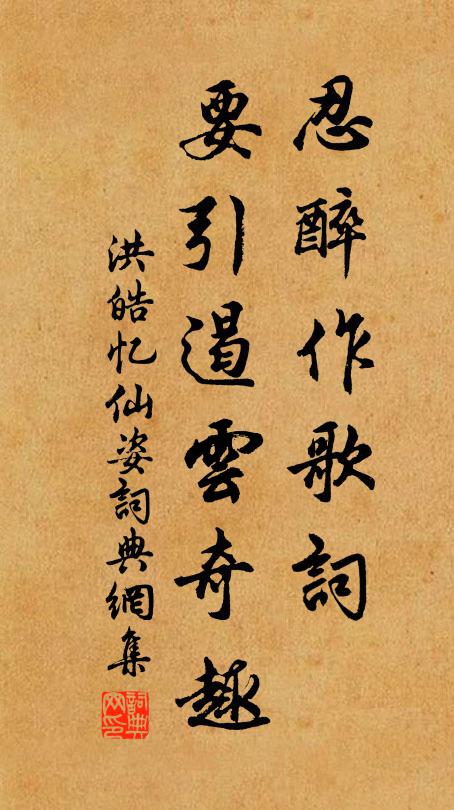 忍醉作歌詞
要引遏雲奇趣
洪皓忆仙姿詞典網集
詞典网印